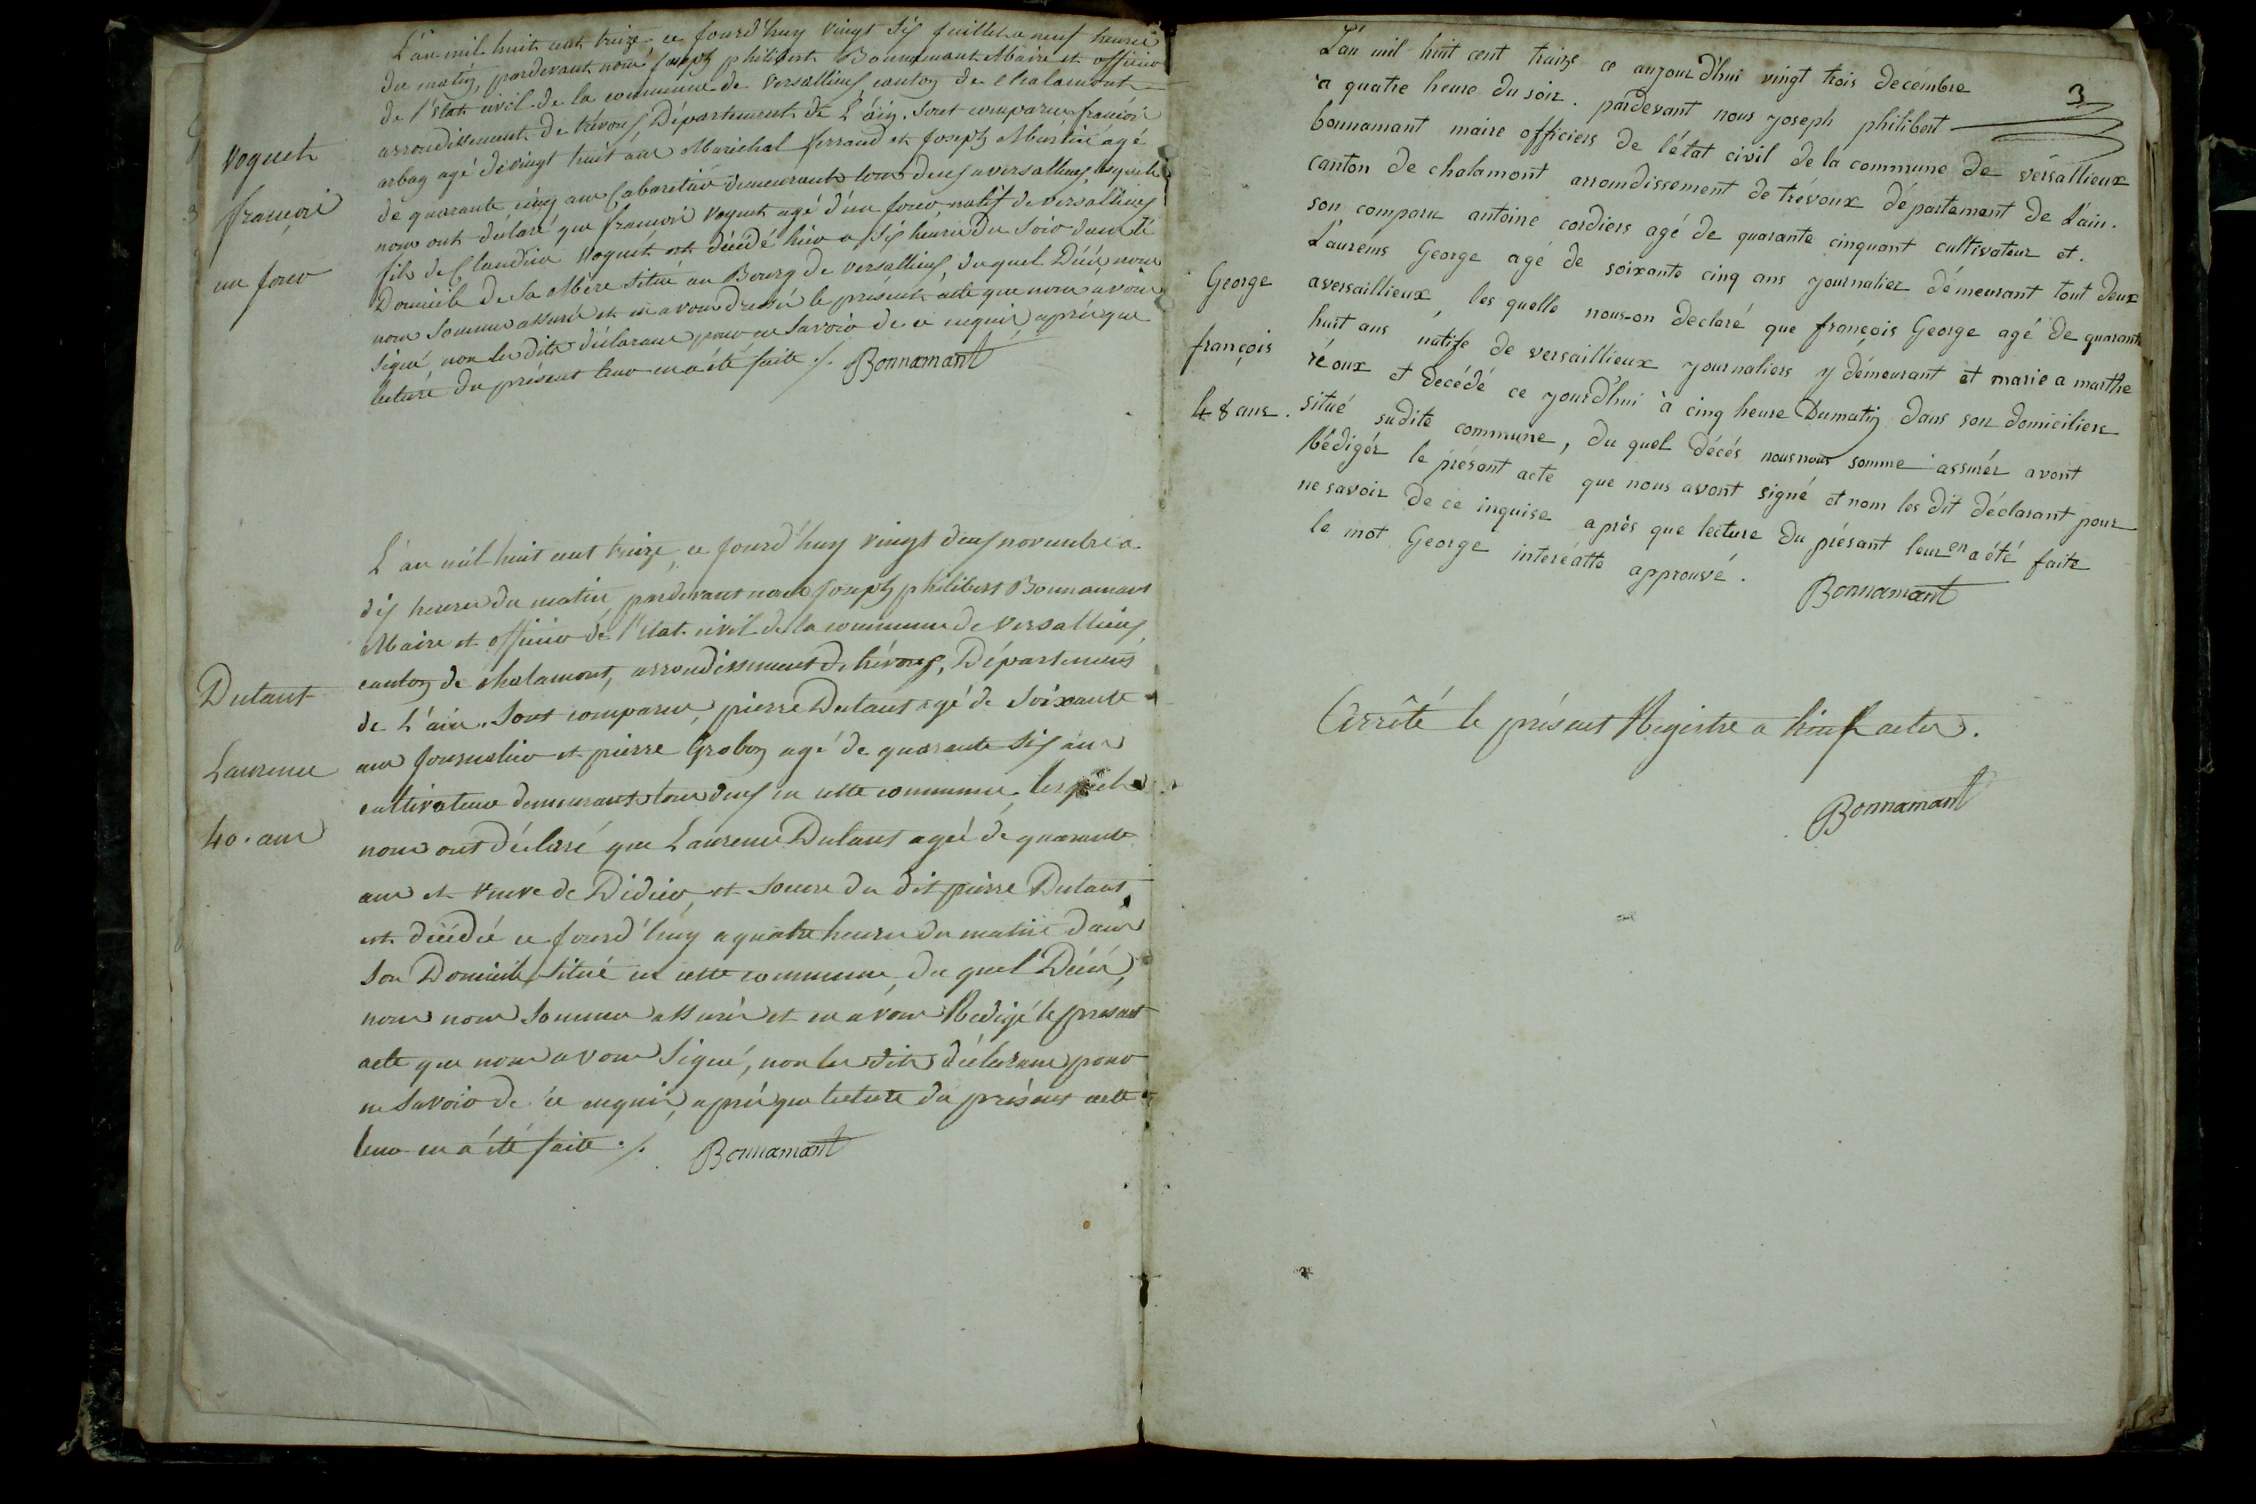 L'an mil huit cent treize ce jourd'huy vingt six juillet a neuf heures
du matin, pardevant nous joseph philibert Bonnamant Maire et officier
de l'Etat civil de la commune de Versallieux canton de chalamont
arrondissement de trévoux, Département de L'ain. Sont comparus françois
arbag agé de vingt huit ans Marechal ferrand et joseph Martin agé
de quarante cinq ans Cabaretier demeurants tous deux a versallieux, lesquels
nous ont déclaré que françois Voguet agé d'un jour natif de Versallieux
fils de Claudine Voguet est décédé hier a six heures du Soir dans le
Domicile de Sa Mère Situé au Bourg de versallieux, duquel Décès, nous
nous Sommes assurés et en avons dressé le présent acte que nous avons
signé, non les dits déclarans pour ne Savoir de ce enquis, après que
lecture du présent leur en a été faite ./. Bonnamant
Voguet
françois
un jour
L'an mil huit cent treize, ce jourd'huy vingt deux novembre a
dix heures du matin pardevant nous joseph philibert Bonnamant
Maire et officier de l'Etat civil de la commune de Versallieux,
canton de chalamont, arrondissement de trévoux, Département
de L'ain. Sont comparus, pierre Dutant agé de Soixante
ans journalier et pierre Grobon agé de quarante Six ans
cultivateur demeurants tous deux en cette commune, lesquels
nous ont déclaré que Laurence Dutant agée de quarante
ans et veuve de Didier, et Soeure du dit pierre Dutant,
est décédée ce jourd'huy a quatre heures du matin dans
Son Domicile Situé en cette commune, du quel Décès,
nous nous Sommes assurés et en avons Redigé le présent
acte que nous avons Signé, non les dits déclarans pour
ne Savoir de ce enquis, après que lecture du présent acte
leur en a été faite ./. Bonnamant
Dutant
Laurence
40. ans
3
L'an mil huit cent traize ce aujour d'hui vingt trois decembre
à quatre heure du soir. pardevant nous yoseph philibert
bonnamant maire officiers de l'état civil de la commune de versallieux
canton de chalamont arromdissement de trévoux département de L'ain.
son comparu antoine cordiers agé de quarante cinquant cultivateur et.
Laurems George agé de soixante cinq ans yournalier démeurant tout deux
aversaillieux, les quelle nous-on declaré que françois George agé de quarante
huit ans natife de versaillieux yournaliers y démeurant et marie a marthe
réoux et decédé ce yourd'hui à cinq heure Dumatin dans son domiciliere
situé sudite commune, du quel décés nousnous somme assurér avont
Rédigér le présant acte que nous avont signé et nom les dit déclarant pour
ne savoir de ce inquise après que lecture du présant leur en a été faite
le mot George interéatte approuvé. Bonnamant
George
françois
48 ans.
Arrêté le présent Registre a actes.
Bonnamant